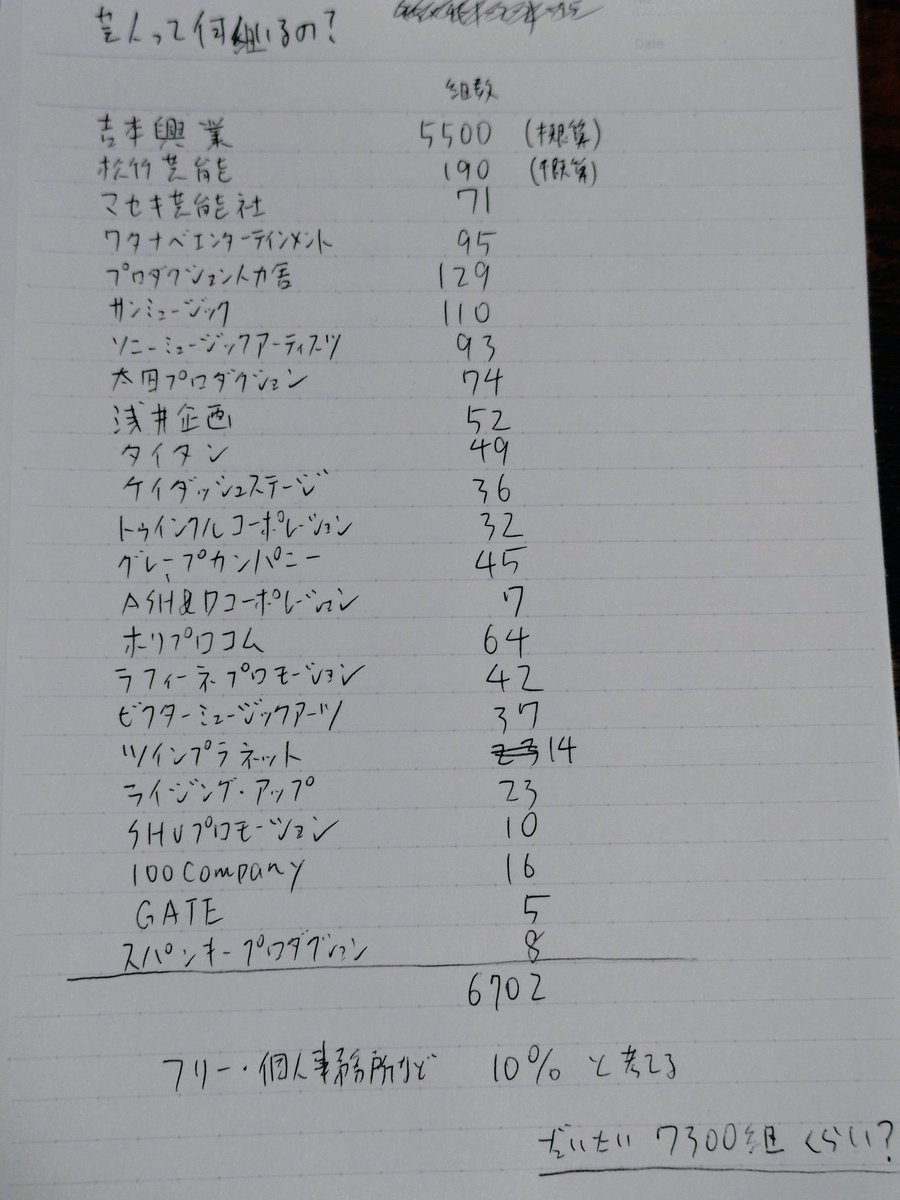 芸人って何組いるの?
Date
組数
吉本興業 5500 (概算)
松竹芸能 190 (概算)
マセキ芸能社 71
ワタナベエンターテインメント 95
プロダクション人力舎 129
サンミュージック 110
ソニーミュージックアーティスツ 93
太田プロダクション 74
浅井企画 52
タイタン 49
ケイダッシュステージ 36
トゥインクルコーポレーション 32
グレープカンパニー 45
ASH&Dコーポレーション 7
ホリプロコム 64
ラフィーネプロモーション 42
ビクターミュージックアーツ 37
ツインプラネット 14
ライジング・アップ 23
SHUプロモーション 10
100Company 16
GATE 5
スパンキープロダクション 8
6702
フリー・個人事務所など 10% と考える
だいたい 7300組くらい?